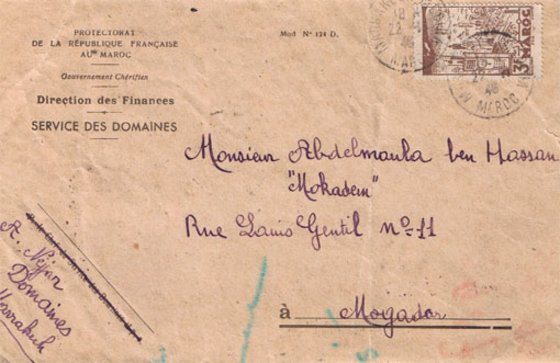 PROTECTORAT
DE LA RÉPUBLIQUE FRANÇAISE
AU MAROC
Gouvernement Chérifien
Direction des Finances
SERVICE DES DOMAINES
Mod N° 124 D.
MAROC
3F
22
46
MAROC
Monsieur Abdelmaula ben Hassan
"Mokadem"
Rue Louis Gentil N°-11
à Mogador
A. Nejjar
Domaines
Marrakech